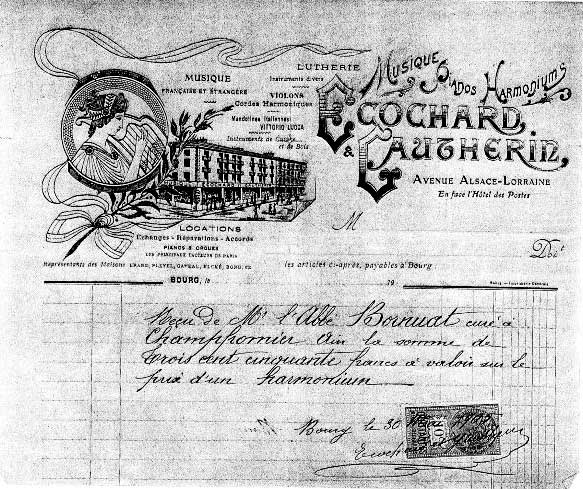 LUTHERIE
Instruments divers
VIOLONS
Cordes Harmoniques
Mandolines Italiennes
VITTORIO LUCCA
Instruments de Cuivre
et de Bois
MUSIQUE
FRANÇAISE ET ÉTRANGÈRE
MUSIQUE PIANOS HARMONIUMS
ECOCHARD
& GAUTHERIN,
AVENUE ALSACE-LORRAINE
En face l'Hôtel des Postes
LOCATIONS
Echanges - Réparations - Accords
PIANOS & ORGUES
DES PRINCIPAUX FACTEURS DE PARIS
Représentants des Maisons ERARD, PLEYEL, GAVEAU,
M
Doit
les articles ci-après, payables à Bourg
BOURG, le 19
Reçu de Mr l'Abbé Bornuat curé à
Champfromier Ain la somme de
trois cent cinquante francs à valoir sur le
prix d'un harmonium
Bourg le 30
10